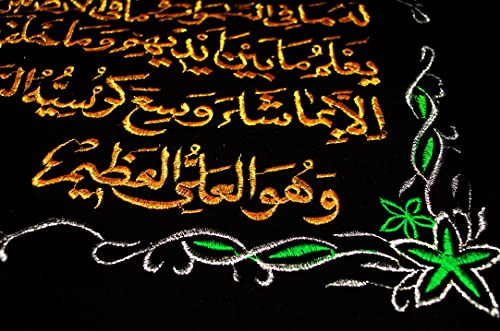 لَهُ مَا فِي السَّمَوَاتِ وَمَا فِي الْأَرْضِ
يَعْلَمُ مَا بَيْنَ أَيْدِيهِمْ وَمَا خَلْفَ
إِلَّا بِمَا شَاءَ وَسِعَ كُرْسِيُّهُ
وَهُوَ الْعَلِيُّ الْعَظِيمُ